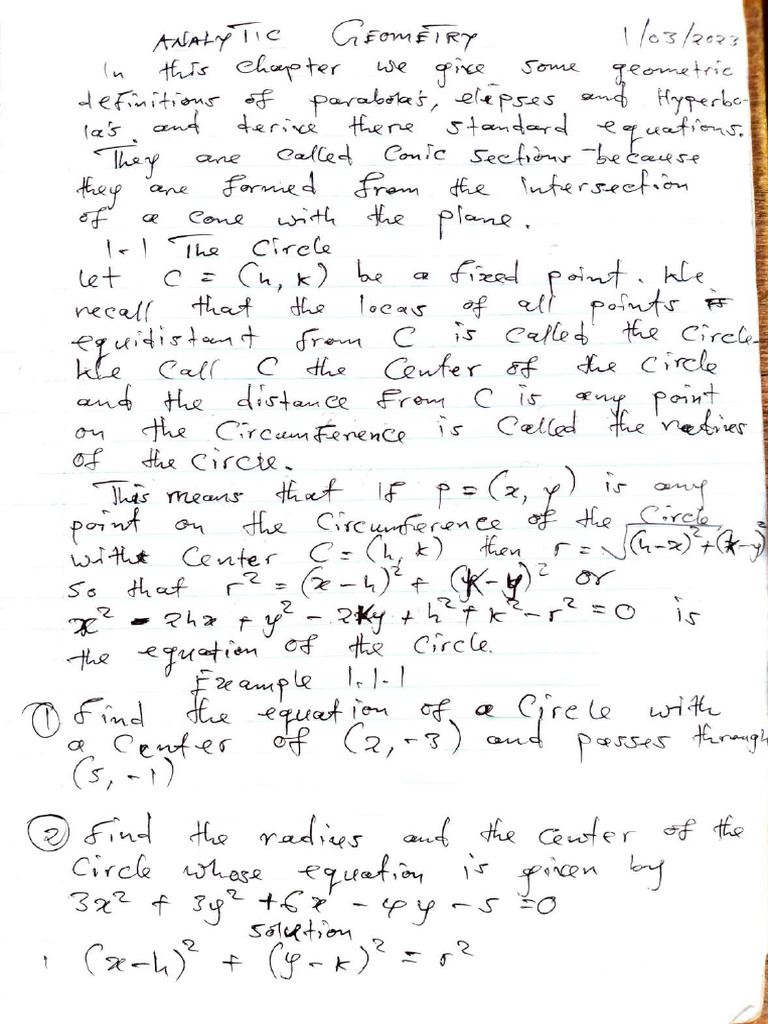 ANALYTIC GEOMETRY 1/03/2023
In this chapter we give some geometric
definitions of parabola's, elepses and Hyperbo-
la's, and derive there standard equations.
They are called Conic sections because
they are formed from the intersection
of a cone with the plane.
1-1 The Circle
Let C = (h, k) be a fixed point. We
recall that the locus of all points is
equidistant from C is called the Circle.
We Call C the Center of the Circle
and the distance from C is any point
on the Circumference is Called the radius
of the circle.
This means that If p = (x, y) is any
point on the Circumference of the Circle
with Center C = (h, k) then r = √(h-x)² + (k-y)²
so that r² = (x-h)² + (k-y)² or
x² - 2hx + y² - 2ky + h² + k² - r² = 0 is
the equation of the Circle.
Example 1.1.1
① Find the equation of a Circle with
a Center of (2, -3) and passes through
(5, -1)
② Find the radius and the center of the
Circle whose equation is given by
3x² + 3y² + 6x - 4y - 5 = 0
solution
1 (x-h)² + (y-k)² = r²